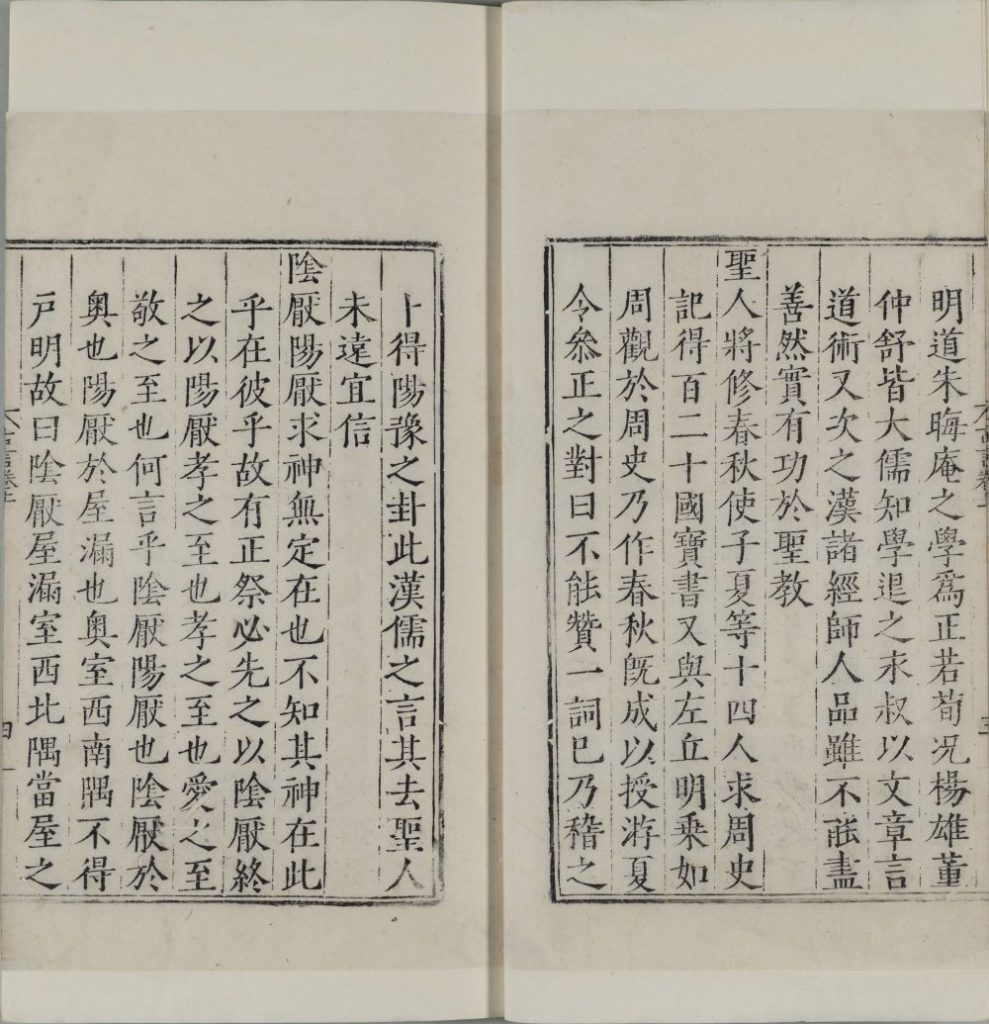 明道朱晦庵之學爲正若荀况楊雄董
仲舒皆大儒知學退之永叔以文章言
道術又次之漢諸經師人品雖不能盡
善然實有功於聖教
聖人將修春秋使子夏等十四人求周史
記得百二十國寶書又與左丘明乗如
周觀於周史乃作春秋旣成以授游夏
令叅正之對曰不能贊一詞已乃稽之
卜得陽豫之卦此漢儒之言其去聖人
未遠宜信
陰厭陽厭求神無定在也不知其神在此
乎在彼乎故有正祭必先之以陰厭終
之以陽厭孝之至也孝之至也愛之至
敬之至也何言乎陰厭陽厭也陰厭於
奥也陽厭於屋漏也奥室西南隅不得
戸明故曰陰厭屋漏室西北隅當屋之
四